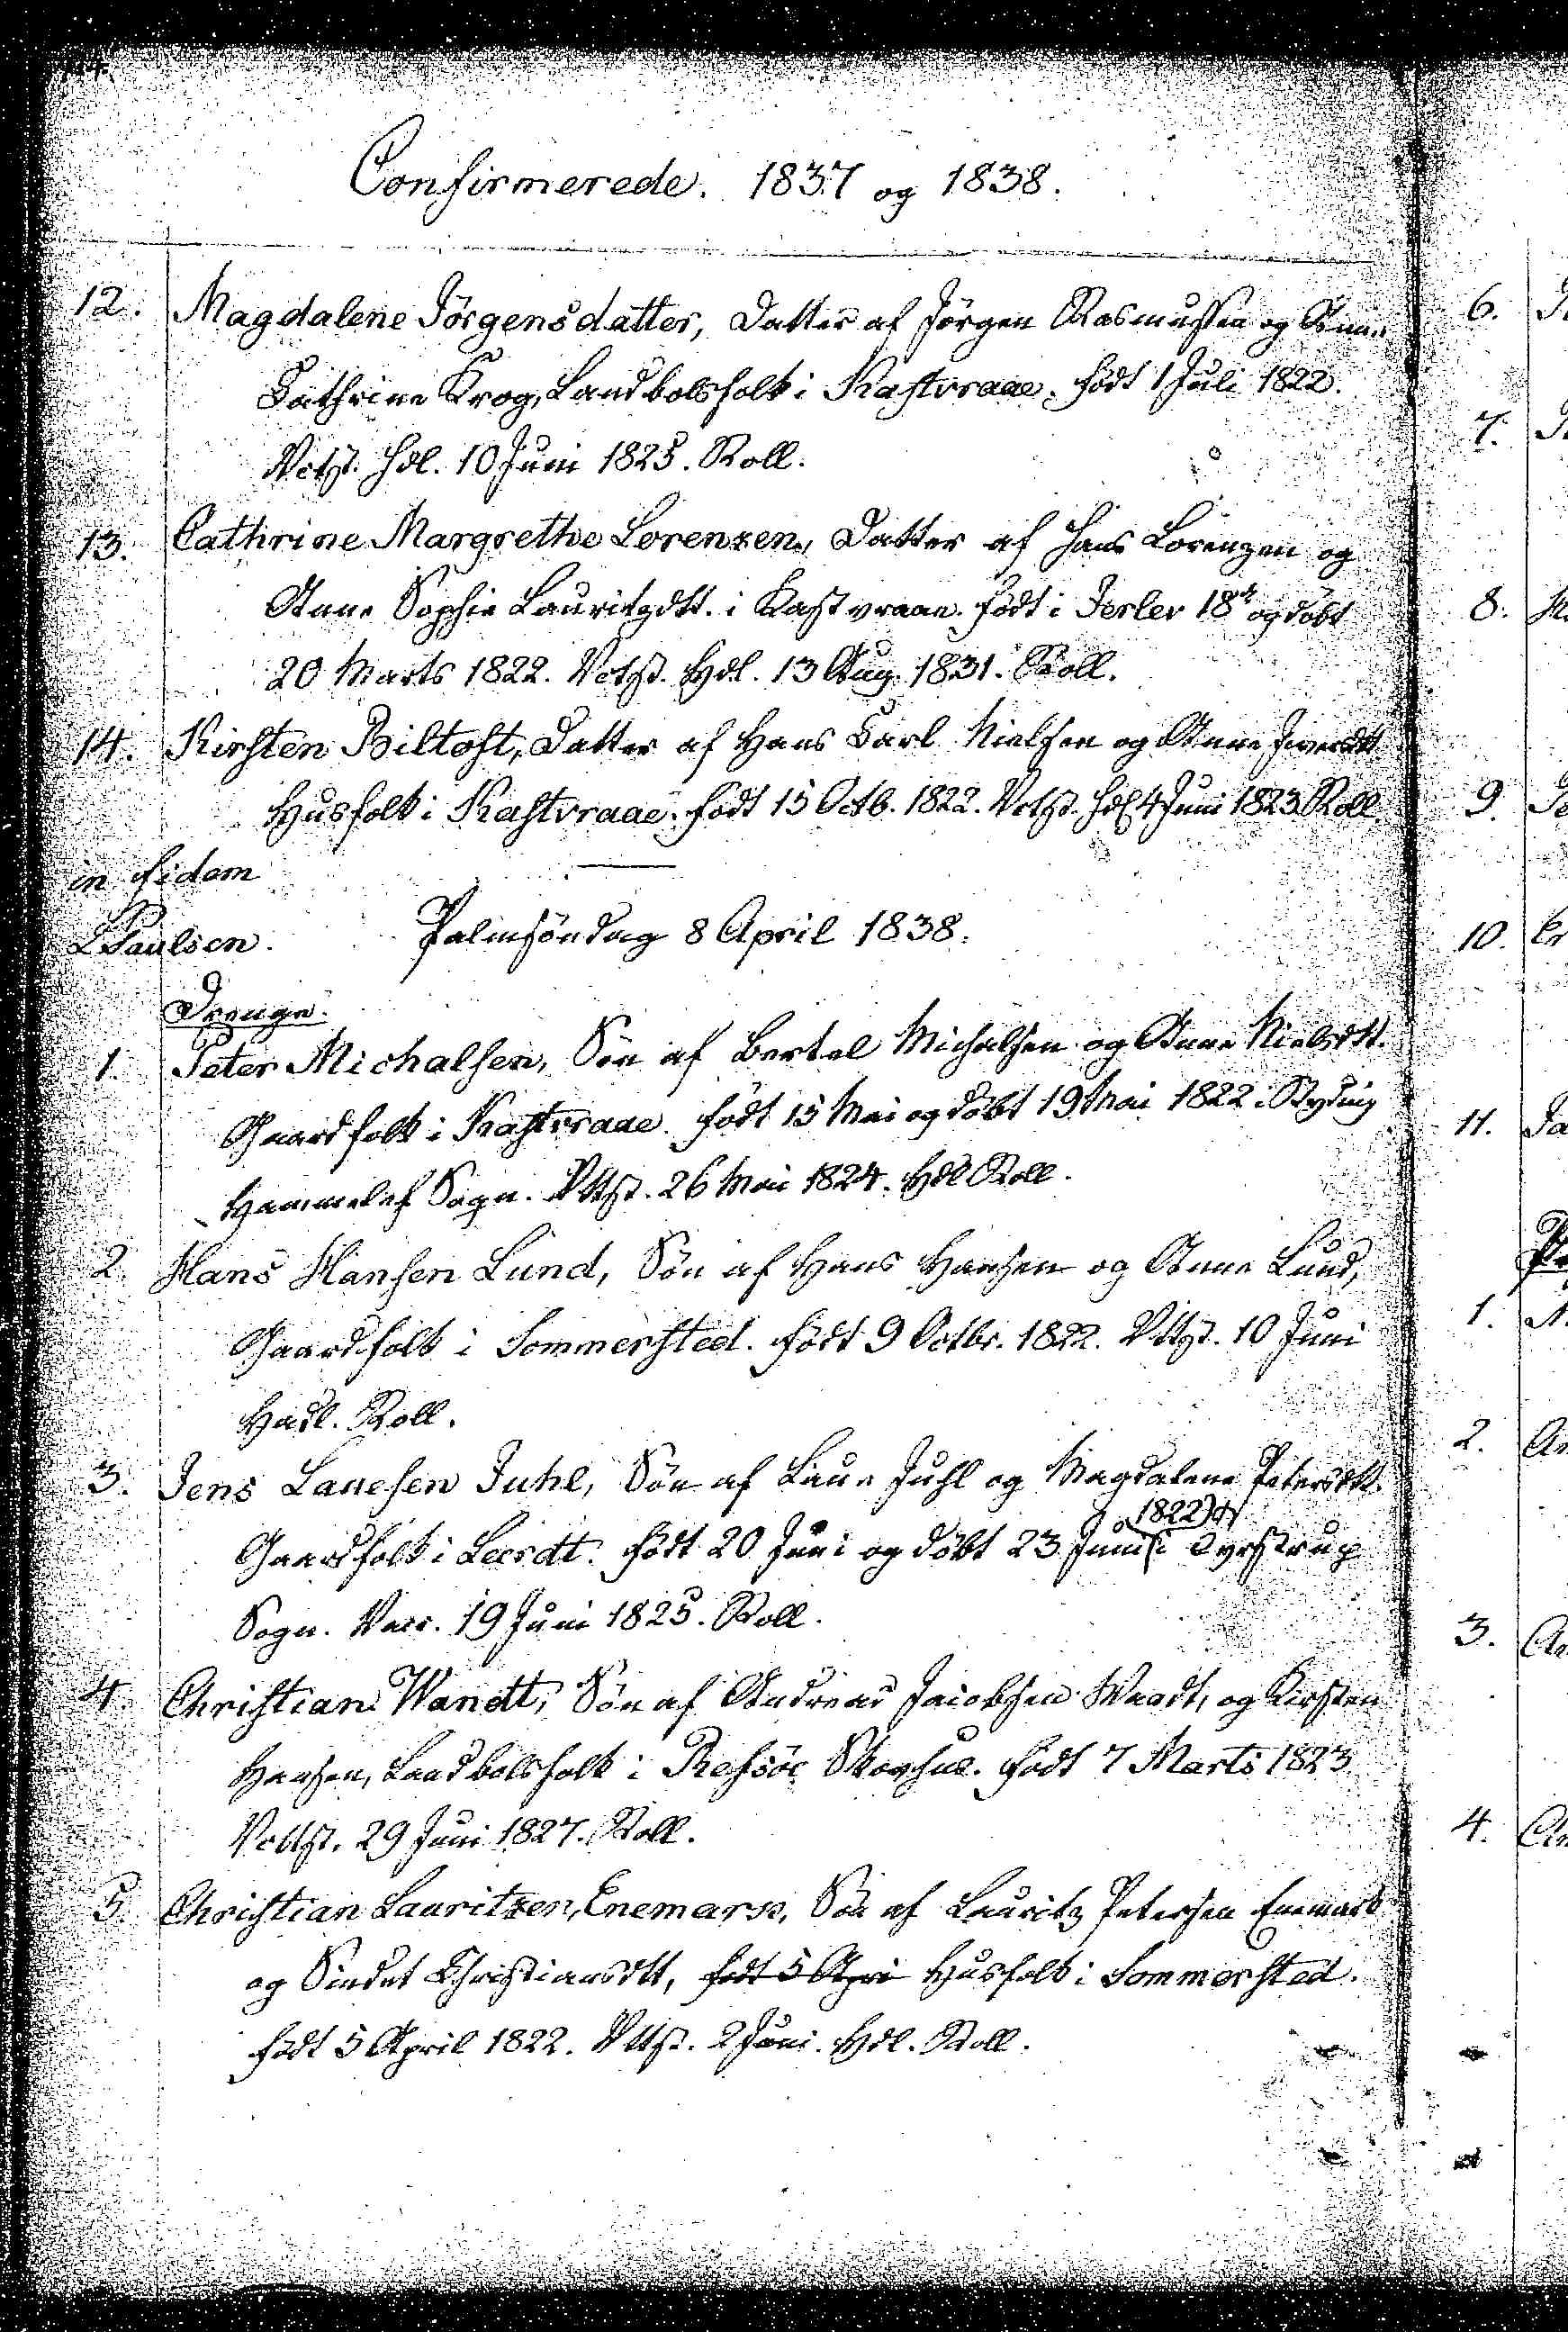 Confirmerede. 1837 og 1838.
12. Magdalene Jörgensdatter, Datter af Jörgen Rasmussen og Anne
Cathrine Krog, Landbolsfolk i Kastvraae, födt 1 Juli 1822.
Vctst. Hdl. 10 Juni 1825. Roll.
13. Cathrine Margrethe Lorenzen, Datter af Hans Lorenzen og
Anne Sophie Lauritzdtt. i Kastvraae. födt i Jerler 18de og döbt
20 Marts 1822. Vctst. Hdl. 13 Aug. 1831. Roll.
14. Kirsten Biltoft, Datter af Hans Carl Nielsen og Anne Iversdtt
Husfolk i Kastvraae. födt 15 Octb. 1822. Vctst. Hdl 4 Juni 1823 Roll.
in fidem
L Paulsen.
Palmsöndag 8 April 1838.
Drenge.
1. Peter Michalsen, Sön af Bertel Michalsen og Anne Nielsdtt.
Gaardfolk i Kastvraae. födt 15 Mai og döbt 19 Mai 1822 i Styding
Hammelef Sogn. Vttst. 26 Mai 1824. Hdl Roll.
2. Hans Hansen Lund, Sön af Hans Hansen og Anne Lund,
Gaardfolk i Sommersted. födt 9 Octbr. 1822. Vttst. 10 Juni
Hadl. Roll.
3. Jens Lauesen Juhl, Sön af Laue Juhl og Magdalene Petersdtt.
Gaardfolk i Leerdt. födt 20 Juni og döbt 23 Juni 1822 i Tyrstrup
Sogn. Vacc. 19 Juni 1825. Roll.
4. Christian Wandt, Sön af Andreas Jacobsen Wandt, og Kirsten
Hansen, Landbolsfolk i Refsöe Skovhus. födt 7 Marts 1823
Vcttst. 29 Juni 1827. Roll.
5. Christian Lauritzen Enemark, Sön af Lauritz Petersen Enemark
og Sindet Christiansdtt, födt 5 Apri Husfolk i Sommersted.
födt 5 April 1822. Vttst. 2 Juni. Hdl. Roll.
6.
7.
8.
9.
10.
11.
1.
2.
3.
4.